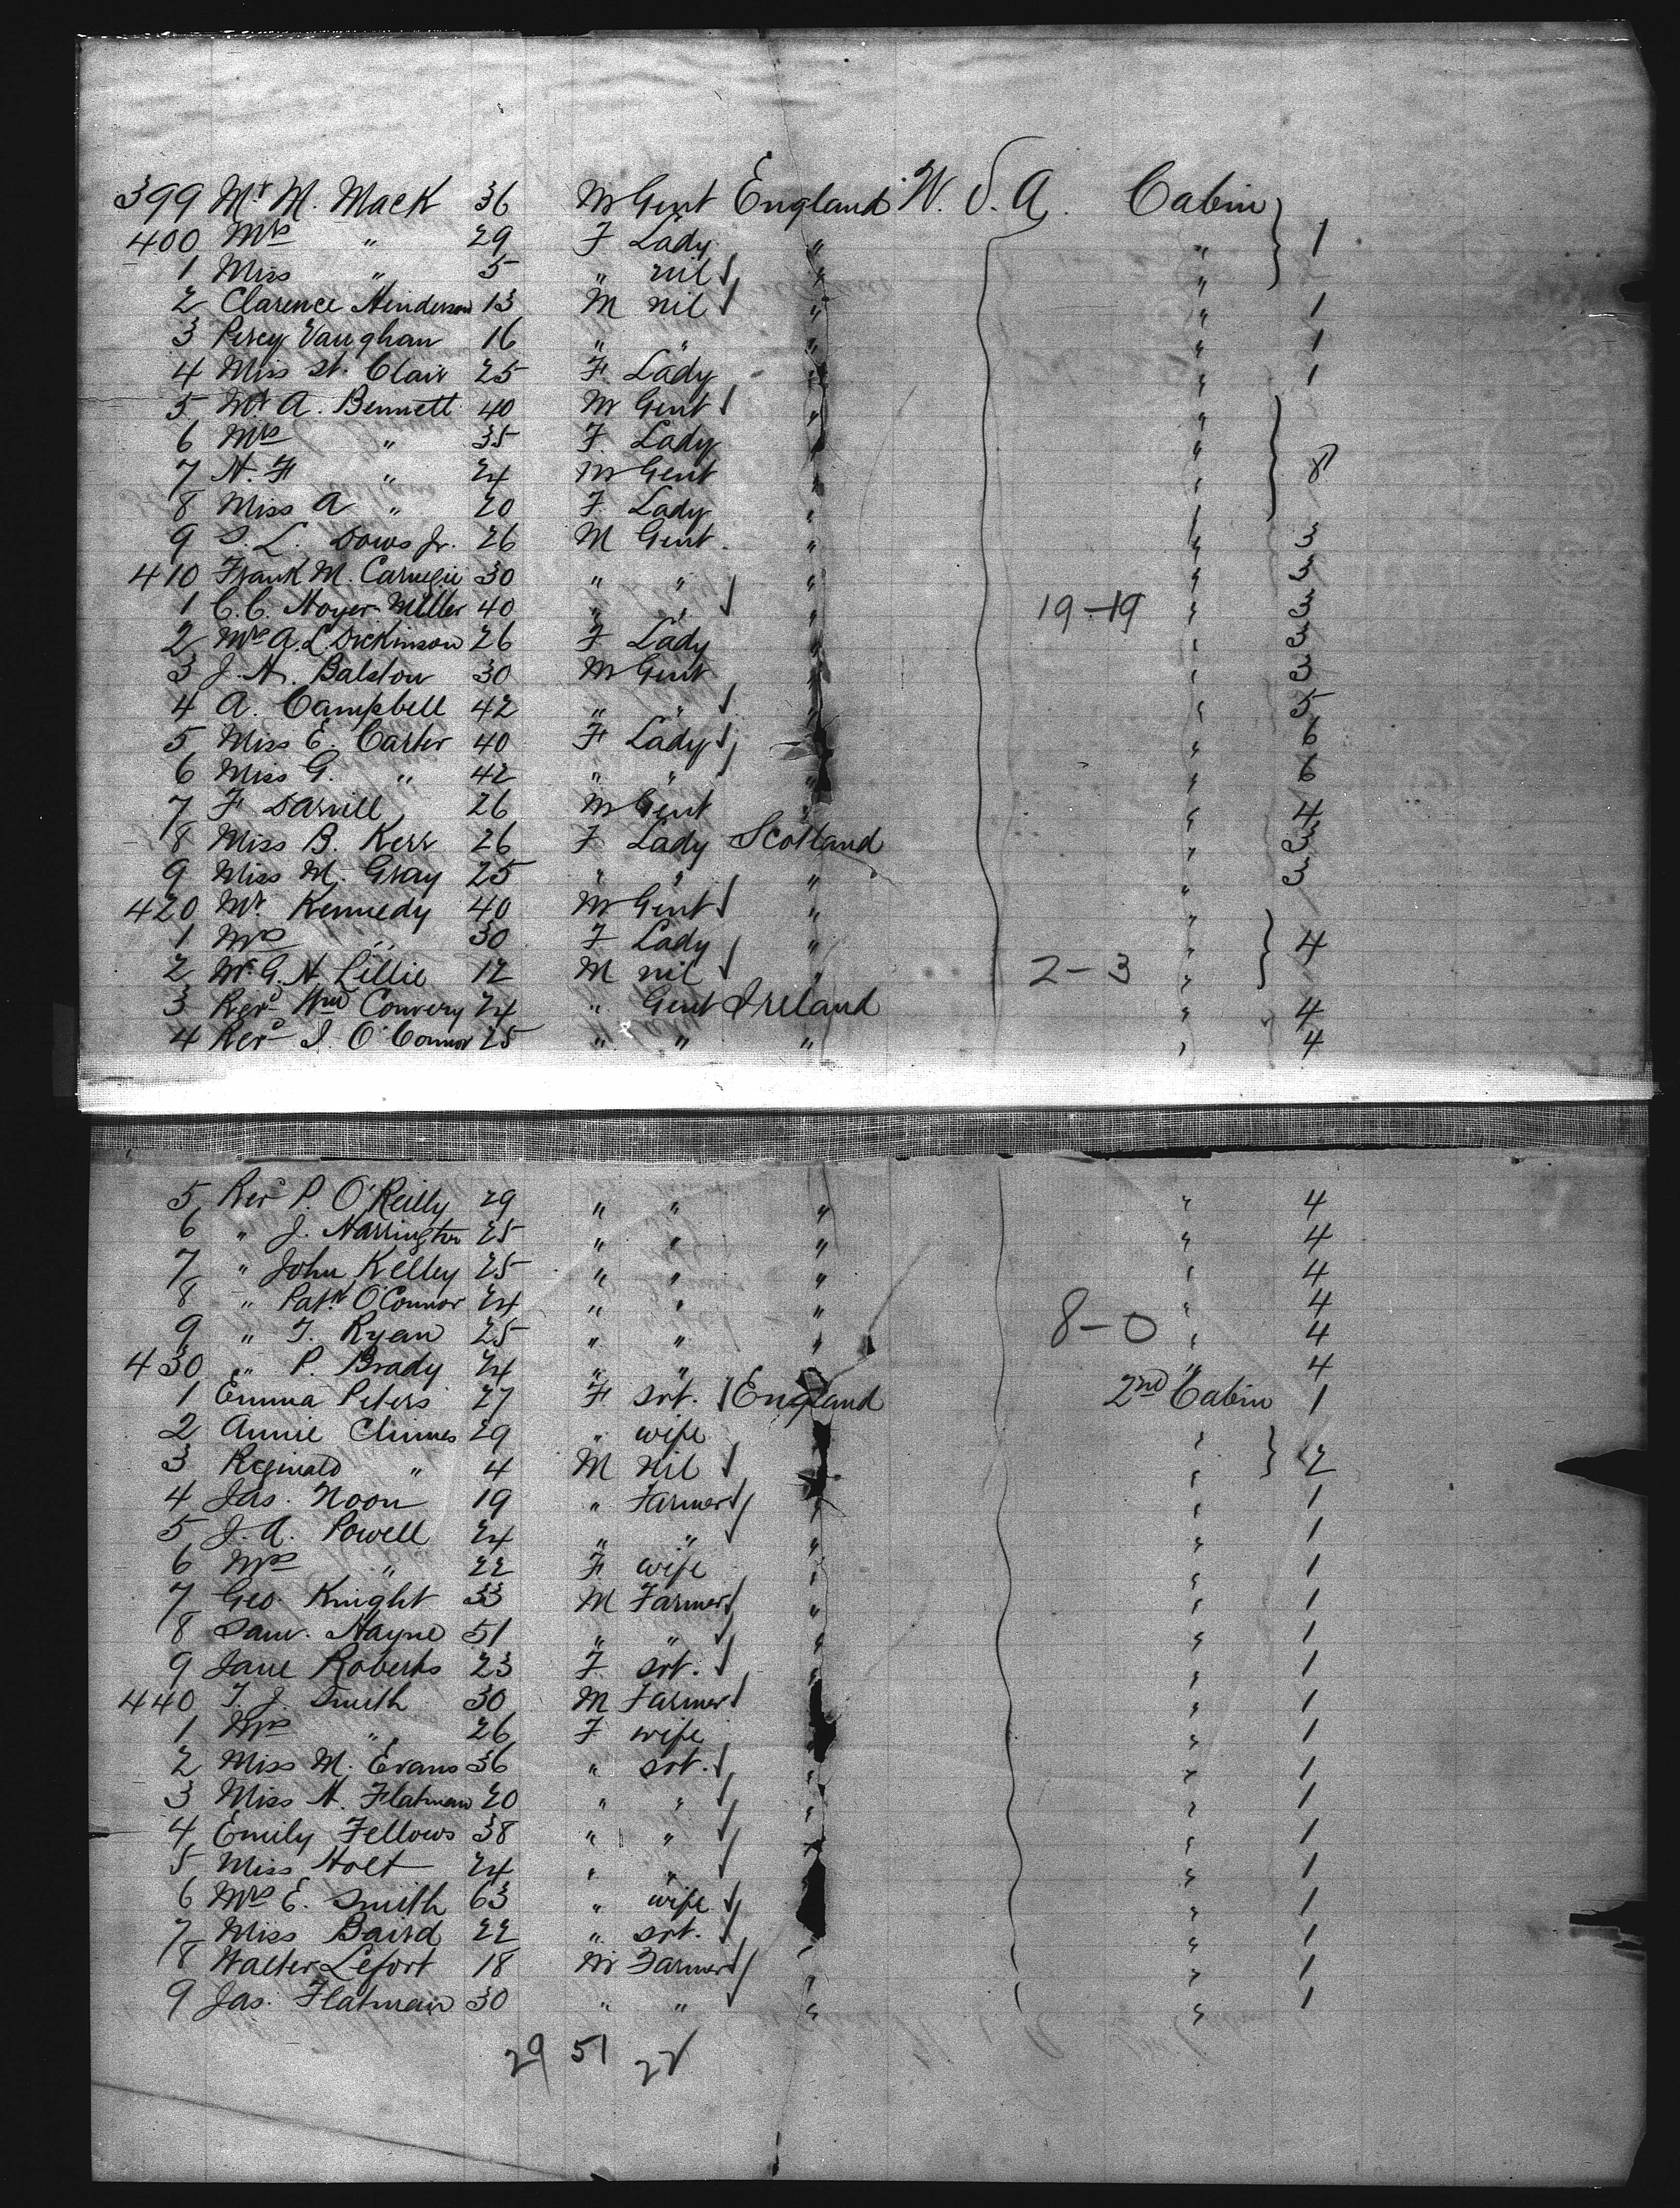 399 Mr M. Mack 36 M Gent England U.S.A. Cabin
400 Mrs " 29 F Lady " " 1
1 Miss " 5 " nil " "
2 Clarence Henderson 13 M nil " " 1
3 Percy Vaughan 16 " " " " 1
4 Miss St. Clair 25 F Lady " " 1
5 Mr A. Bennett 40 M Gent " "
6 Mrs " 35 F Lady " "
7 H. F " 24 M Gent " " 8
8 Miss A " 20 F Lady " "
9 S. L. Dows Jr. 26 M Gent. " " 3
410 Frank M. Carnegie 30 " " " " 3
1 C. C. Hoyer-Miller 40 " " " 19-19 " 3
2 Mrs A. L. Dickinson 26 F Lady " " 3
3 J. H. Balston 30 M Gent " " 3
4 A. Campbell 42 " " " " 5
5 Miss E. Carter 40 F Lady " " 6
6 Miss G. " 42 " " " " 6
7 F Darvill 26 M Gent " " 4
8 Miss B. Kerr 26 F Lady Scotland " 3
9 Miss M. Gray 25 " " " " 3
420 Mr. Kennedy 40 M Gent " "
1 Mrs " 30 F Lady " " 4
2 W. G. H Lillie 12 M nil " 2-3 "
3 Revd Wm Convery 24 " Gent Ireland " 4
4 Revd J. O'Connor 25 " " " " 4
5 Revd P. O'Reilly 29 " " " " 4
6 " J. Harrington 25 " " " " 4
7 " John Kelley 25 " " " " 4
8 " Patk O'Connor 24 " " " " 4
9 " T. Ryan 25 " " " 8-0 " 4
430 " P. Brady 24 " " " " 4
1 Emma Peters 27 F svt. England 2nd Cabin 1
2 Annie Chinnes 29 " wife " "
3 Reginald " 4 M nil " " 2
4 Jas. Noon 19 " Farmer " " 1
5 J. A. Powell 24 " " " " 1
6 Mrs " 22 F wife " " 1
7 Geo. Knight 33 M Farmer " " 1
8 Saml. Hayne 51 " " " " 1
9 Jane Roberts 23 F svt. " " 1
440 T. J. Smith 30 M Farmer " " 1
1 Mrs " 26 F wife " " 1
2 Miss M. Evans 36 " svt. " " 1
3 Miss H. Flatman 20 " " " " 1
4 Emily Fellows 38 " " " " 1
5 Miss Holt 24 " " " " 1
6 Mrs E. Smith 63 " wife " " 1
7 Miss Baird 22 " svt. " " 1
8 Walter Lefort 18 M Farmer " " 1
9 Jas. Flatman 30 " " " " 1
29 51 22